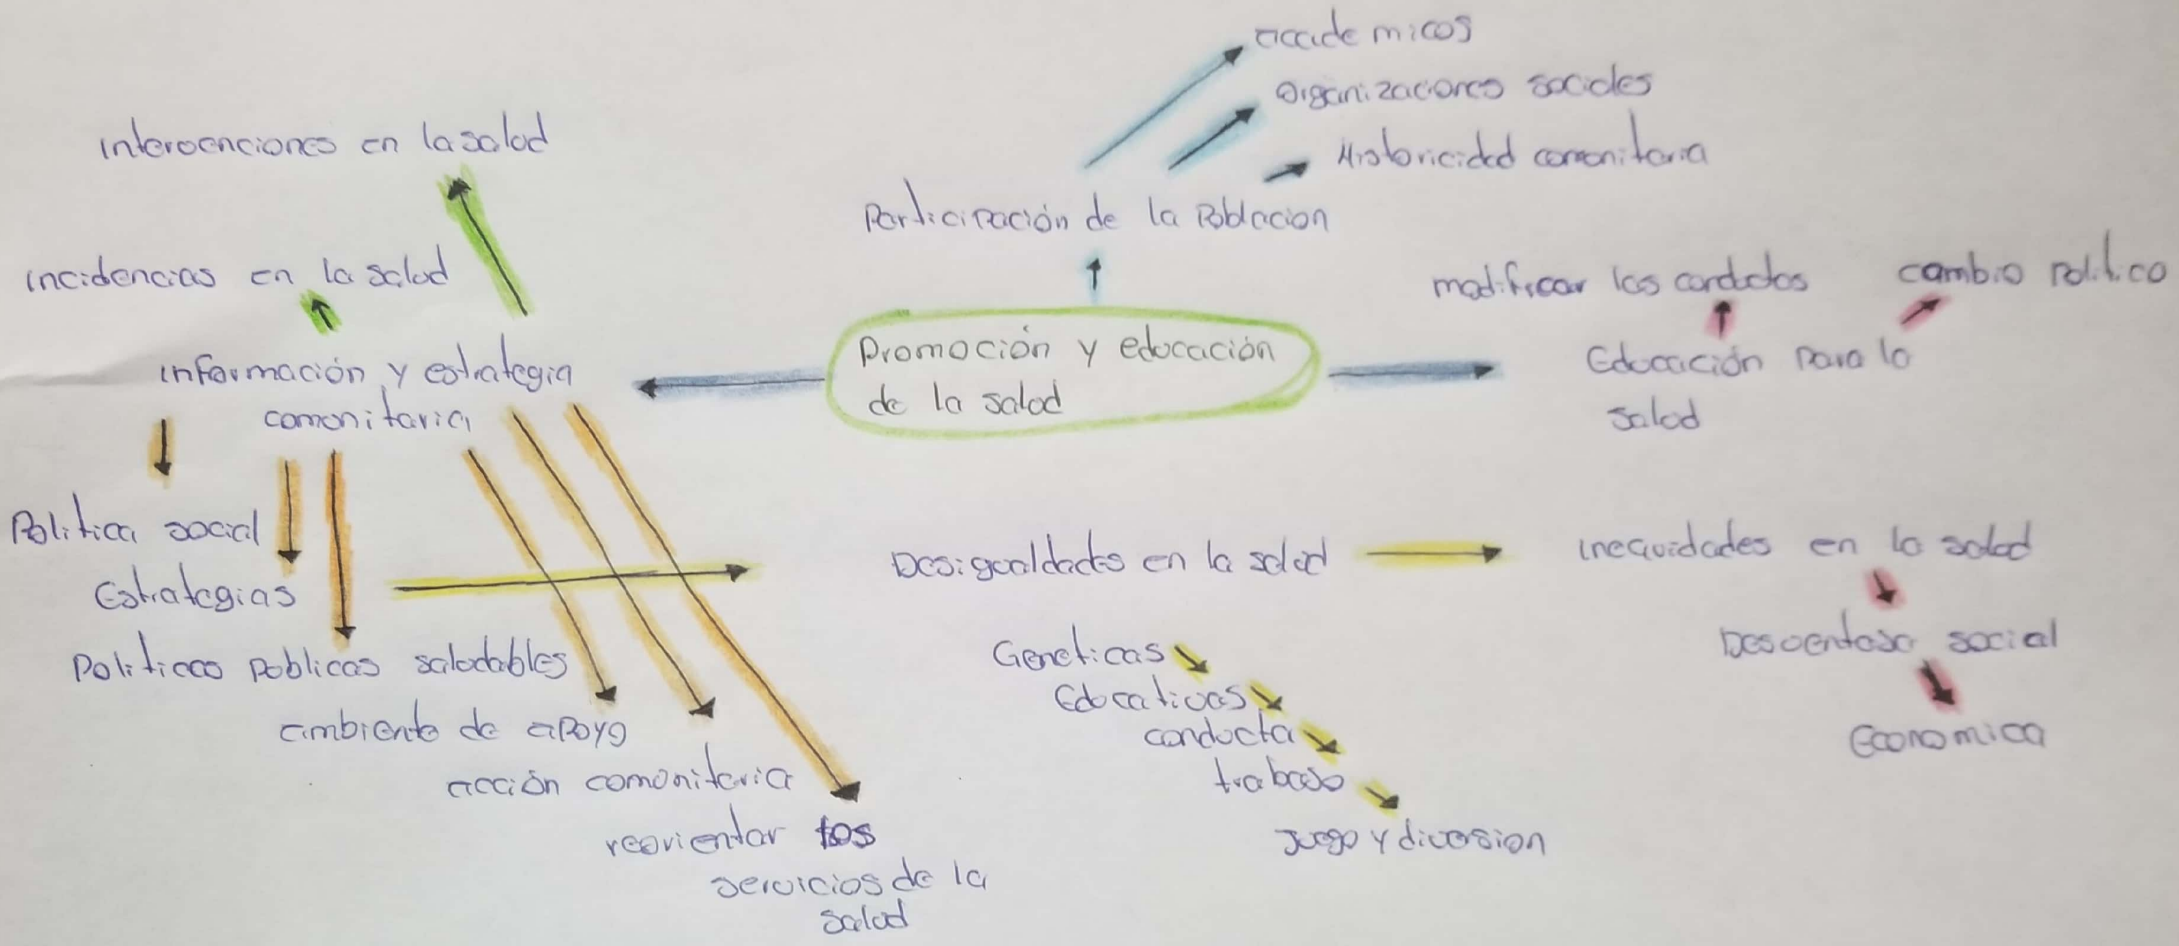 academicos
Organizaciones sociales
Historicidad comonitaria
intervenciones en la salod
Participación de la Poblacion
incidencias en la salod
modificar las conductas
cambio Politico
Promoción y edocación
de la salod
información y estrategia
comonitaria
Edocación Para la
salod
Politica social
Estrategias
Desigoaldades en la salod
ineqoidades en la salod
Politicas Poblicas salodables
ambiente de aPoyo
acción comonitaria
reorientar los
servicios de la
salod
Geneticas
Edocativas
condocta
trabaso
Juego y diversion
Desventasa social
Economica